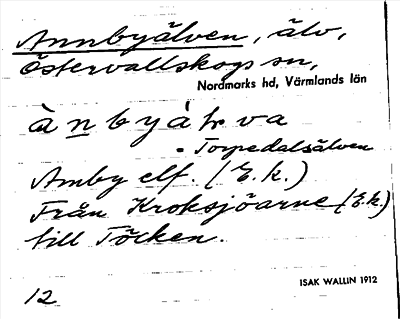 Annbyälven, älv,
Östervallskogs sn,
Nordmarks hd, Värmlands län
ànbyá̀lva
- Torpedalsälven
Amby elf. (E.k.)
Från Kroksjöarne (E.k.)
till Töcken.
ISAK WALLIN 1912
12